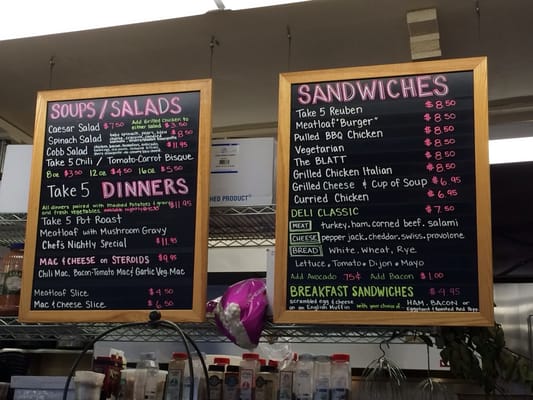 SOUPS / SALADS
Caesar Salad $7.50 Add Grilled Chicken to either salad $3.50
Spinach Salad $8.50
Cobb Salad $11.95
Take 5 Chili / Tomato-Carrot Bisque
8oz $3.50 12oz $4.50 16oz $5.50
Take 5 DINNERS
All dinners paired with Mashed Potatoes & gravy and fresh vegetables $11.95
Take 5 Pot Roast
Meatloaf with Mushroom Gravy
Chef's Nightly Special $11.95
MAC & CHEESE ON STEROIDS $9.95
Chili Mac, Bacon-Tomato Mac & Garlic Veg. Mac
Meatloaf Slice $4.50
Mac & Cheese Slice $6.50
SANDWICHES
Take 5 Reuben $8.50
Meatloaf "Burger" $8.50
Pulled BBQ Chicken $8.50
Vegetarian $8.50
The BLATT $8.50
Grilled Chicken Italian $8.50
Grilled Cheese & Cup of Soup $6.95
Curried Chicken $6.95
DELI CLASSIC $7.50
MEAT turkey, ham, corned beef, salami
CHEESE pepper jack, cheddar, swiss, provolone
BREAD White, Wheat, Rye
Lettuce, Tomato, Dijon, Mayo
Add Avocado 75¢ Add Bacon $1.00
BREAKFAST SANDWICHES $4.95
Scrambled egg & cheese on an English Muffin with your choice of: HAM, BACON or Eggplant & Roasted Red Peps
PRODUCT